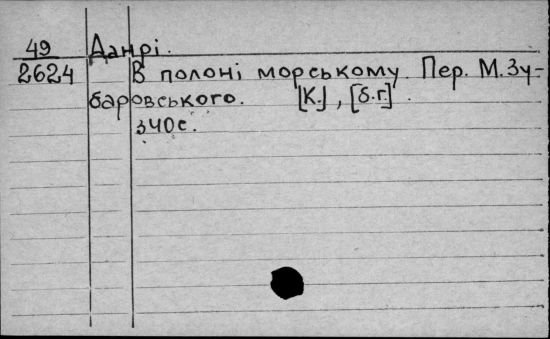 49 Данрі.
2624 В полоні морському. Пер. М. Зу-
баровського. [К.], [б.г.].
340с.